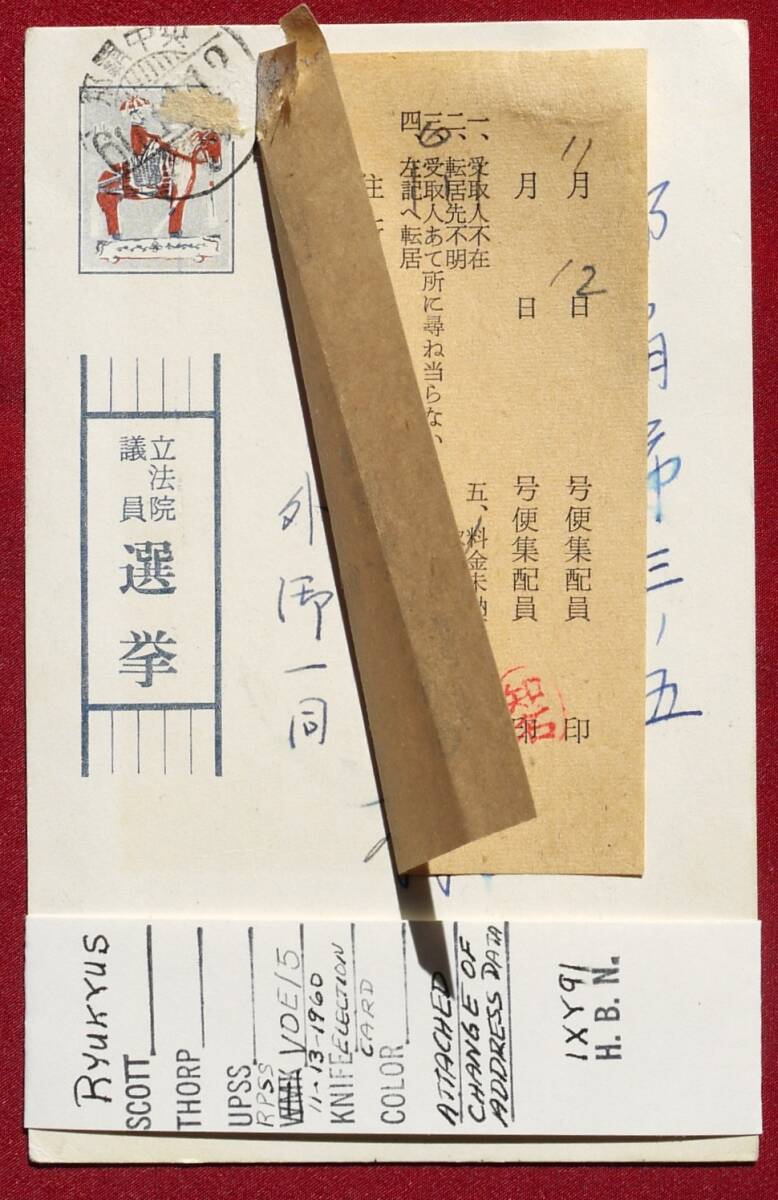 那覇中央
11月 12日 号便集配員 印
月 日 号便集配員 印
一、受取人不在
二、転居先不明
三、受取人あて所に尋ね当らない
四、左記へ転居
五、料金未納
知名
三ノ五
外御一同
立法院
議員
選挙
RYUKYUS
SCOTT
THORP
UPSS
RPSS
WMK VOE15
11-13-1960
KNIFE ELECTION
CARD
COLOR
ATTACHED
CHANGE OF
ADDRESS DATA
1XY91
H. B. N.